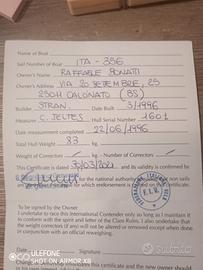 Name of Boat
Sail Number of Boat ITA - 356
Owner's Name RAFFAELE BONATTI
Owner's Address VIA 20 SETTEMBRE, 25
25011 CALCINATO (BS)
Builder STRAN. Date Built 3/1996
Measurer C. JELTES Hull Serial Number 1601
Date measurement completed 22/06/1996
Total Hull Weight 83 kg.
Weight of Correctors - kg. - Number of Correctors -
This Certificate is dated 30/03/2021 and its validity is confirmed by
for the national authority
for which endorsement is
To be signed by the Owner
I undertake to race this International Contender only so long as I maintain it
to conform with the spirit and letter of the Class Rules. I also undertake that
weight correctors (if any) will not be altered or removed except when done
in conjunction with an official reweighing.
Date Signature
ULEFONE
SHOT ON ARMOR X8
Subito